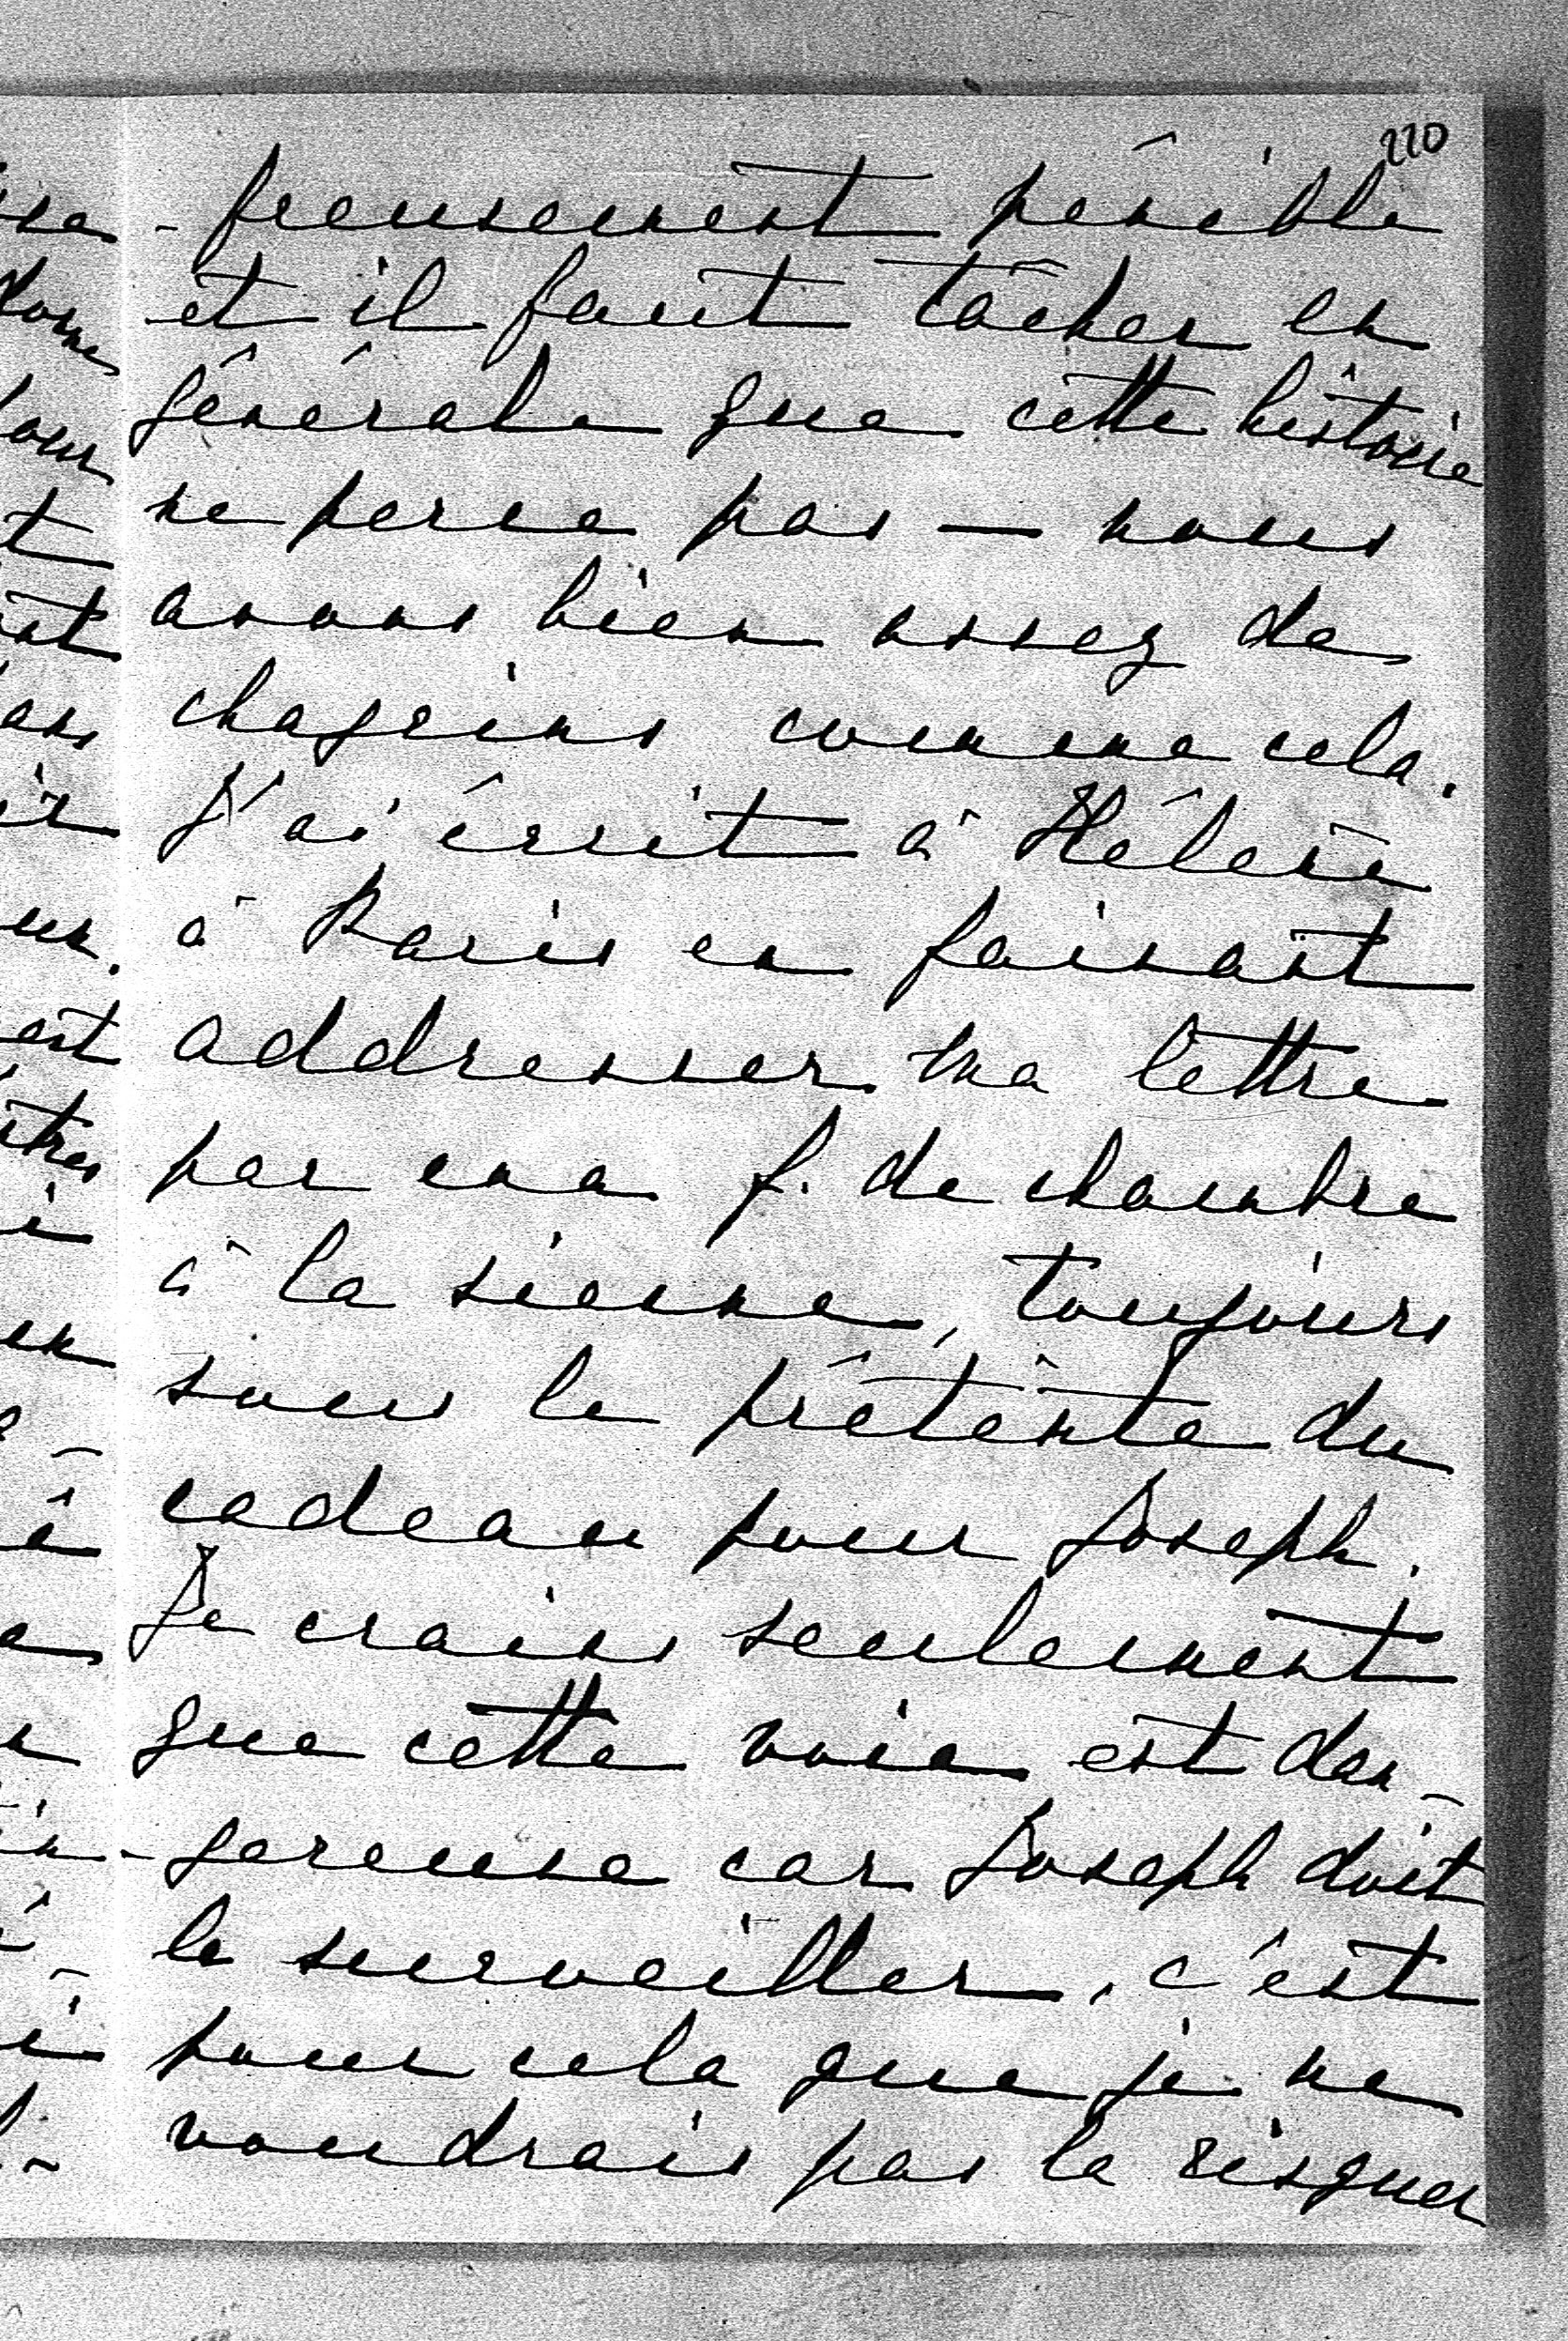 220
- freusement pénible
et il faut tâcher en
générale que cette histoire
ne perce pas — nous
avons bien assez de
chagrins comme cela.
J'ai écrit à Hélène
à Paris en faisant
addresser ma lettre
par ma f. de chambre
à la sienne, toujours
sous le prétexte du
cadeau pour Joseph.
Je crains seulement
que cette voie est dan-
- gereuse car Joseph doit
le surveiller, c'est
pour cela que je ne
voudrais pas la risquer